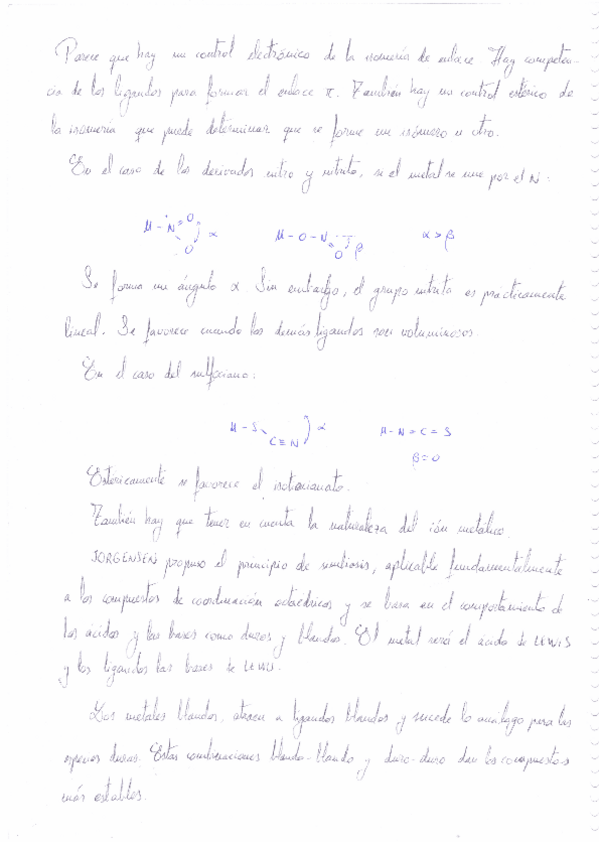 Parece que hay un control electrónico de la isomería de enlace. Hay competen-
cia de los ligandos para formar el enlace π. También hay un control estérico de
la isomería que puede determinar que se forme un isómero u otro.
En el caso de los derivados nitro y nitrito, si el metal se une por el N:
M - N = O O α M - O - N O β α > β
Se forma un ángulo α. Sin embargo, el grupo nitrito es prácticamente
lineal. Se favorece cuando los demás ligandos son voluminosos.
En el caso del sulfociano:
M - S C ≡ N α M - N = C = S
β = 0
Estéricamente se favorece el isotiocianato.
También hay que tener en cuenta la naturaleza del ión metálico.
JORGENSEN propuso el principio de simbiosis, aplicable fundamentalmente
a los compuestos de coordinación octaédricos y se basa en el comportamiento de
los ácidos y las bases como duros y blandos. El metal será el ácido de LEWIS
y los ligandos las bases de LEWIS.
Los metales blandos, atraen a ligandos blandos y sucede lo análogo para las
especies duras. Estas combinaciones blando-blando y duro-duro dan los compuestos
más estables.